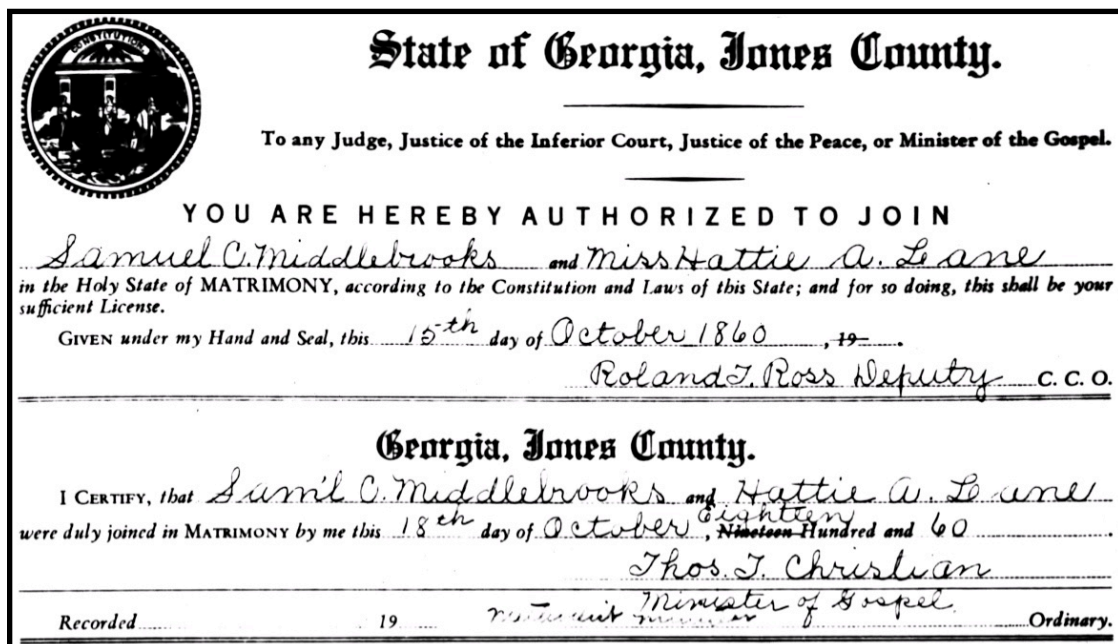 CONSTITUTION
State of Georgia, Jones County.
To any Judge, Justice of the Inferior Court, Justice of the Peace, or Minister of the Gospel.
YOU ARE HEREBY AUTHORIZED TO JOIN
Samuel C. Middlebrooks and Miss Hattie A. Leane
in the Holy State of MATRIMONY, according to the Constitution and Laws of this State; and for so doing, this shall be your
sufficient License.
GIVEN under my Hand and Seal, this 15th day of October 1860, 19 .
Roland T. Ross Deputy C. C. O.
Georgia, Jones County.
I CERTIFY, that Sam'l C. Middlebrooks and Hattie A. Leane
were duly joined in MATRIMONY by me this 18th day of October, Eighteen Nineteen Hundred and 60 .
Thos. T. Christian
Minister of Gospel
Recorded 19 Ordinary.